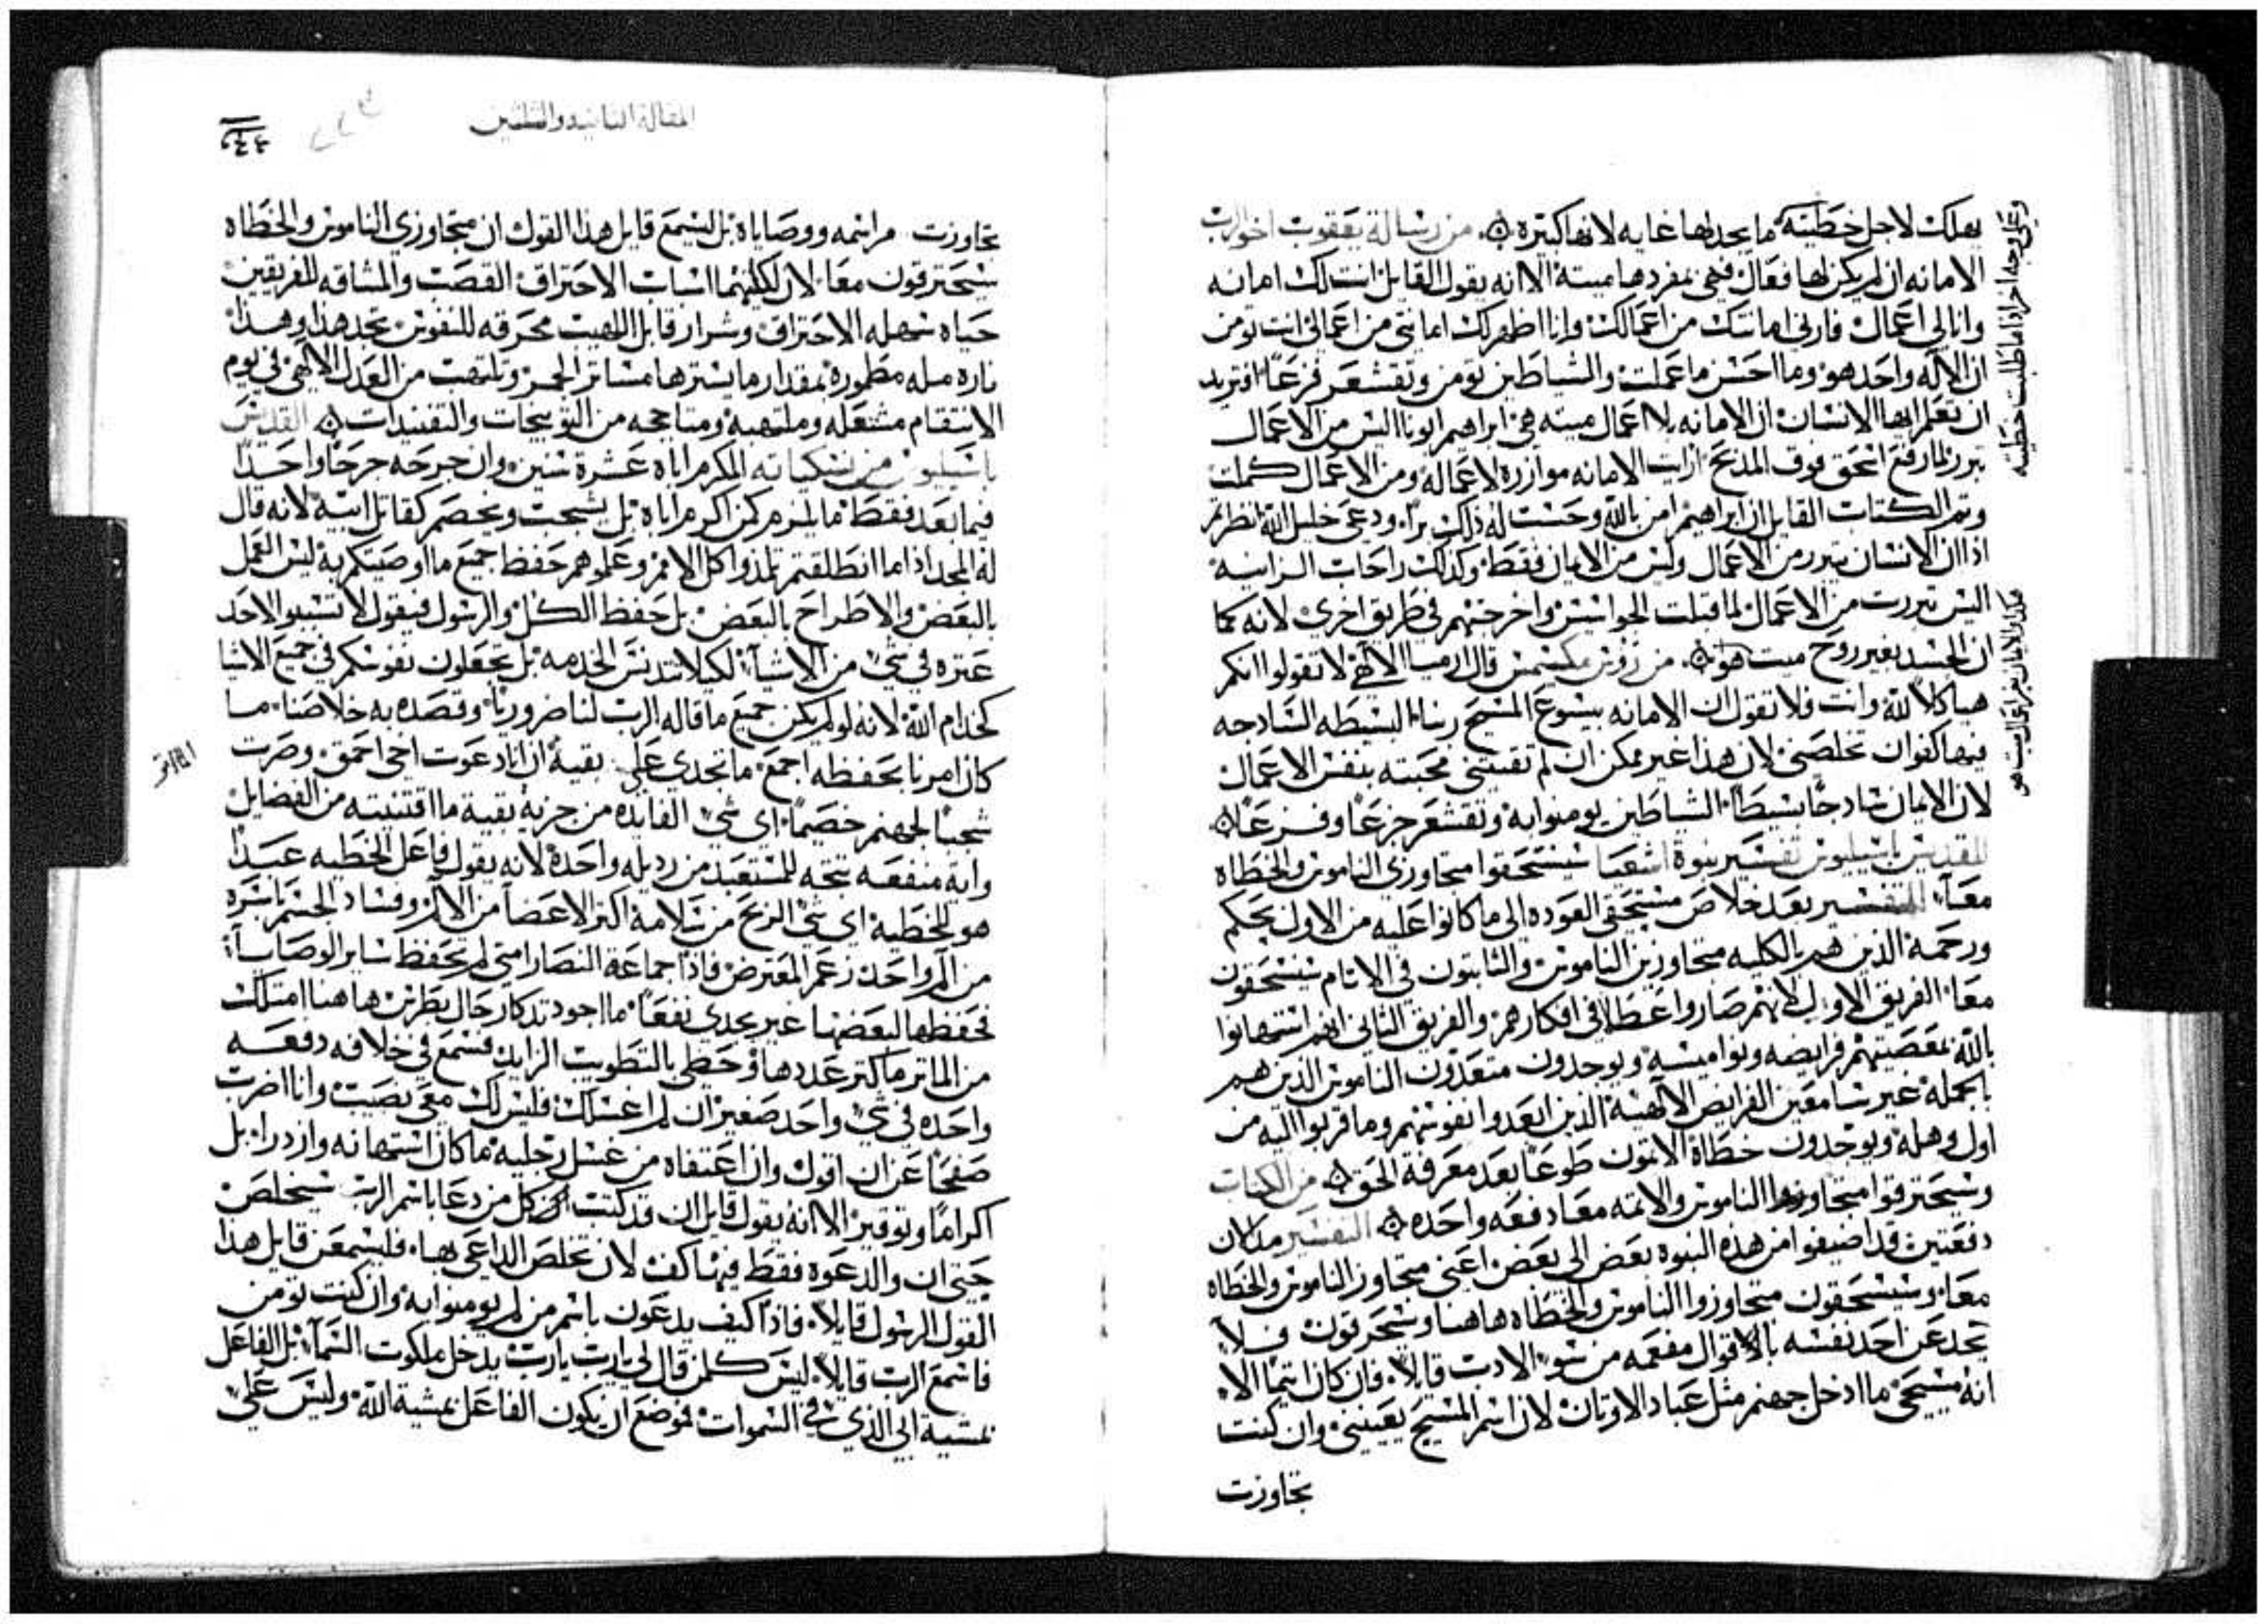 يهلك لاجل خطيته ما يحد لها غايه لانها كثيرة من رسالة يعقوب اخو الرب
الامانه ان لم يكن لها فعال فهي بمفردها ميته الا انه يقول القايل انت لك امانه
وانا لي اعمال فارني امانتك من اعمالك وانا اظهر لك امانتي من اعمالي انت تومن
ان الاله واحد هو وما احسن ما عملت والشياطين تومن وتقشعر فزعا افتريد
ان تعلم ايها الانسان ان الامانه بلا اعمال ميته هي ابراهيم ابونا اليس من الاعمال
تبرر لما رفع اسحق فوق المذبح ارايت الامانه موازره لاعماله ومن الاعمال كملت
وتم الكتاب القايل ان ابراهيم امن بالله وحسبت له ذلك برا ودعي خليل الله انظر
اذا ان الانسان يتبرر من الاعمال وليس من الايمان فقط وكذلك راحاب الزانيه
اليس تبررت من الاعمال لما قبلت الجواسيس واخرجتهم في طريق اخري لانه كما
ان الجسد بغير روح ميت هو من مكسيمس قال ارميا الالاهي لا تقولوا انكم
هياكلا لله وانت فلا تقول ان الامانه بيسوع المسيح ربنا البسيطه السادجه
فيها كفوا ان تخلصني لان هذا غير ممكن ان لم تقتني محبته بنفس الاعمال
لان الايمان سادجا بسيطا الشياطين يومنوا به وتقشعر جزعا وفزعا
القديس باسيليوس تفسير نبوة اشعيا سينسحقوا متجاوزي الناموس والخطاه
معا التفسير بعد خلاص مستحقي العوده الي ما كانوا عليه من الاول بحكم
ورحمة الذين هم بالكليه متجاوزين الناموس والثابتون في الاثام سينسحقون
معا الفريق الاول لانهم صاروا عطلا في افكارهم والفريق الثاني انهم استهانوا
بالله بمعصيتهم فرايضه ونواميسه ويوجدون متعدون الناموس الذين هم
بالجمله غير سامعين الفرايض الالاهية الذين ابعدوا نفوسهم وما قربوا اليه من
اول وهله ويوجدون خطاة الاتون طوعا بعد معرفة الحق من الكتاب
وسيحترقوا متجاوزوا الناموس والاثمه معا دفعه واحده التفسير مذ الان
دفعتين قد اضيفوا من هذه النبوه بعض الي بعض اعني متجاوز الناموس والخطاه
معا وسينسحقون متجاوزوا الناموس والخطاه هاهنا وسيحرقون فلا
يخدعن احد نفسه بالاقوال مفعمه من سو الادب قايلا فان كان ايتما الا
انه مسيحي ما ادخل جهنم مثل عباد الاوثان لان اسم المسيح يعينني وان كنت
تجاوزت
وعلي وجه اخر اذا ما طلبت خطيته
هكذا والايمان بغير اعمال ميت هو
المقالة الثانيه والثلثين
تجاوزت مراسمه ووصاياه بل ليسمع قايل هذا القول ان متجاوزي الناموس والخطاه
سيحترقون معا لان لكليهما اسباب الاحتراق القصب والمشاقه للفريقين
حياه سهله الاحتراق وشرار قابل اللهيب محرقه للنفوس تجد هذا وهذا
ناره مطموره بمقدار ما يسترها مساتر الجمر وتلتهب من العدل الالاهي في يوم
الانتقام مشتعله وملتهبه ومتاججه من التوبيخات والتفنيدات القديس
باسيليوس من نسكياته المكرم اباه عشرة سنين وان جرحه جرحا واحدا
فيما بعد فقط ما يكرم كمن اكرم اباه بل يشجب ويخصم كقاتل ابيه لانه قال
له المجد اذا ما انطلقتم تلمذوا كل الامم وعلموهم حفظ جميع ما اوصيتكم به ليس العمل
بالبعض والاطراح بالبعض بل حفظ الكل والرسول فيقول لا تسببوا لاحد
عثره في شي من الاشيا لكيلا تتدنس الخدمه بل تجعلون نفوسكم في جميع الاشيا
كخدام الله لانه لو لم يكن جميع ما قاله الرب لنا ضروريا وقصده به خلاصنا ما
كان امرنا بحفظه اجمع ما تجدي علي بقية ان انا دعوت اخي احمق وصرت
شجبا لجهنم خصيما اي شي الفايده من جزية بقية ما اقتنيته من الفضايل
واية منفعه تتجه للمستعبد من رذيله واحدة لانه يقول فاعل الخطيه عبدا
هو للخطية اي شي الربح من سلامة اكثر الاعضا من الالم وفساد الجسم باسره
من الم واحد زعم المعترض فاذا جماعة النصارا متي لم تحفظ ساير الوصايا
فحفظها لبعضها غير يجدي نفعا ما اجود تذكار حال بطرس هاهنا امتلك
من الماثر ما كثر عددها وحظي بالتطويب الزايد فسمع في خلافه دفعه
واحده في شي واحد صغير ان لم اغسلك فليس لك معي نصيب وانا اضرب
صفحا عن ان اقول وان اعتفاه من غسل رجليه ما كان استهانه وازدرا بل
اكراما وتوقيرا الا انه يقول قايل ان قد كتب ان كل من دعا باسم الرب سيخلص
حتي ان والدعوه فقط فيها كفت لان تخلص الداعي بها فليسمعن قايل هذا
القول الرسول قايلا فاذا كيف يدعون باسم من لم يومنوا به وان كنت تومن
فاسمع الرب قايلا ليس كلمن قال لي يارب يارب يدخل ملكوت السما بل الفاعل
بمشية ابي الذي في السموات فموضع ان يكون الفاعل بمشية الله وليس علي